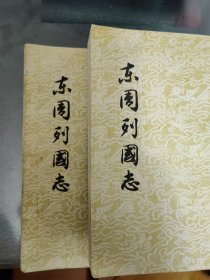 东周列國志
东周列國志